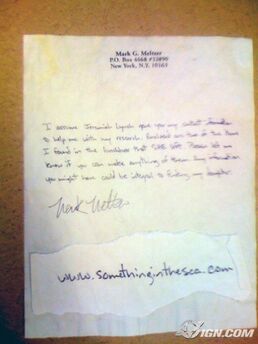 Mark G. Meltzer
P.O. Box 4668 #13890
New York, N.Y. 10163
I assume Jeremiah Lynch gave you my contact information
to help me with my research. Enclosed are two of the items
I found in the lunchbox that SHE left. Please let me
know if you can make anything of them. Any information
you might have could be integral to finding my daughter.
Mark Meltzer
www.somethinginthesea.com
IGN.COM